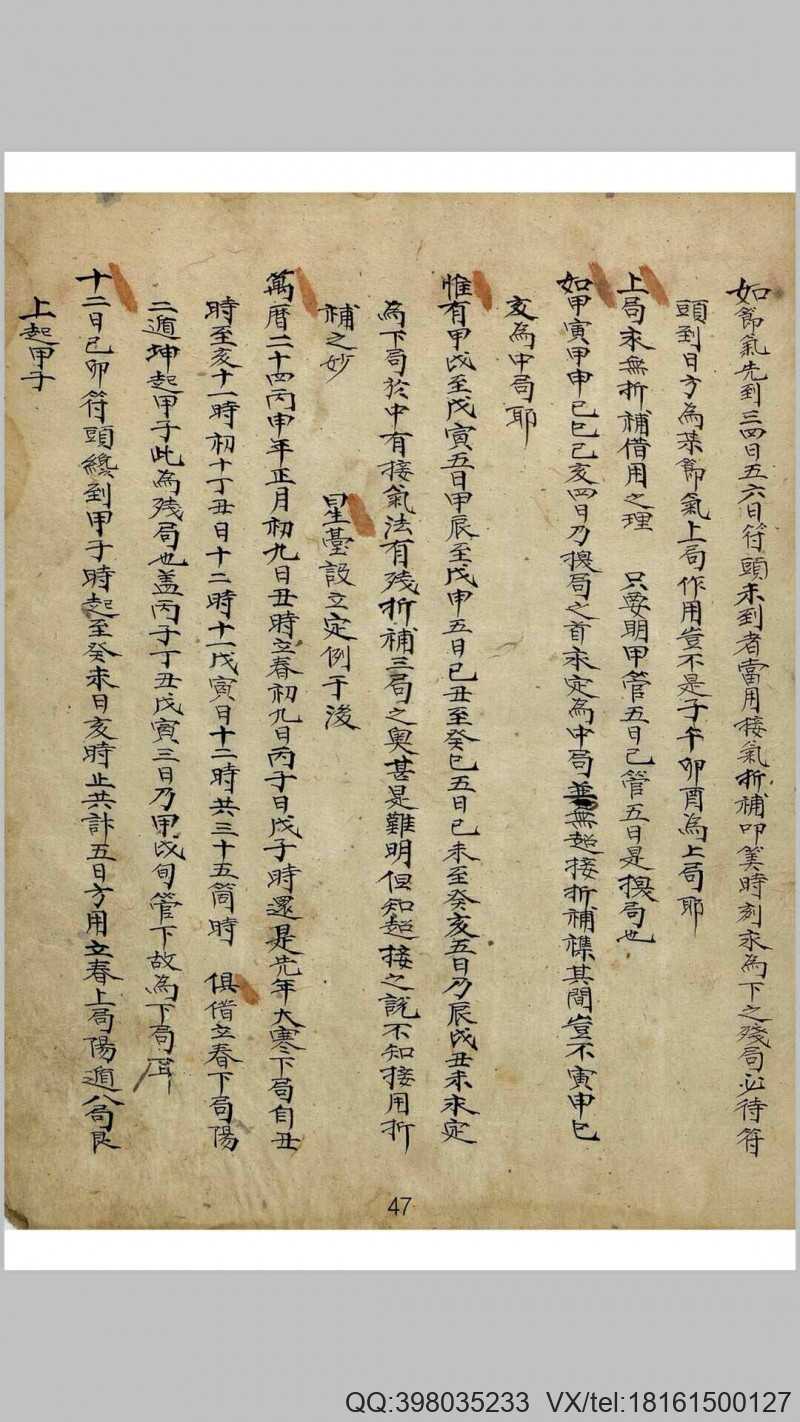 如節氣先到三四日五六日符頭未到者當用接氣折補叩筭時刻求為下之殘局必待符
頭到日方為某節氣上局作用豈不是子午卯酉為上局耶
上局求無折補借用之理 只要明甲管五日己管五日是換局也
如甲寅甲申己巳己亥四日乃換局之首求定為中局無超接折補襍其間豈不寅申巳
亥為中局耶
惟有甲戌至戊寅五日甲辰至戊申五日己丑至癸巳五日己未至癸亥五日乃辰戌丑未求定
為下局於中有接氣法有殘折補三局之奧甚是難明但知超接之說不知接用折
補之妙 星臺設立定例于後
萬曆二十四丙申年正月初九日丑時立春初九日丙子日戊子時還是先年大寒下局自丑
時至亥十一時初十丁丑日十二時十一戊寅日十二時共三十五箇時 俱借立春下局陽
二遁坤起甲子此為殘局也蓋丙子丁丑戊寅三日乃甲戌旬管下故為下局耳
十二日己卯符頭纔到甲子時起至癸未日亥時止共計五日方用立春上局陽遁八局艮
上起甲子
47
QQ:398035233 VX/tel:18161500127